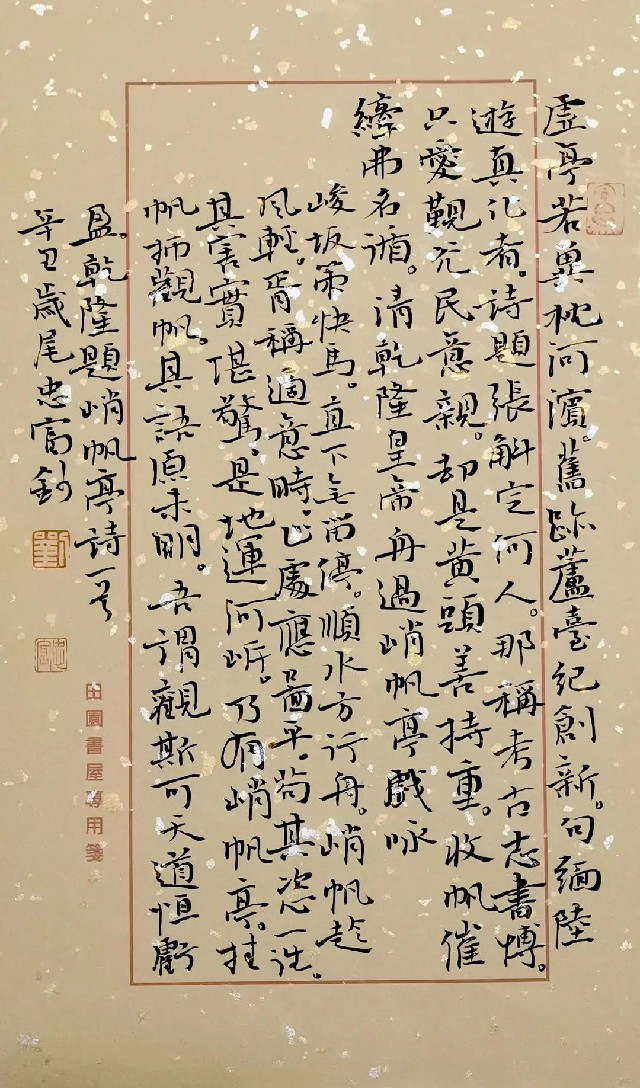 虛亭若異枕河濱。舊跡蘆臺紀創新。句緬陸
遊真化者。詩題張斛定何人。那稱考古志書博。
只愛觀光民意親。却是黃頭善持重。收帆催
縴弗名循。清乾隆皇帝舟過峭帆亭戲咏
峻坂策快馬。直下無留停。順水方行舟。峭帆趁
風輕。胥稱適意時。正處應前平。苟其恣一往。
其害實堪驚。是地運河岍。乃有峭帆亭。挂
帆抑觀帆。其語原未明。吾謂觀斯可天道恒虧
盈。乾隆題峭帆亭詩一首
辛丑歲尾忠富鈔
田園書屋專用箋